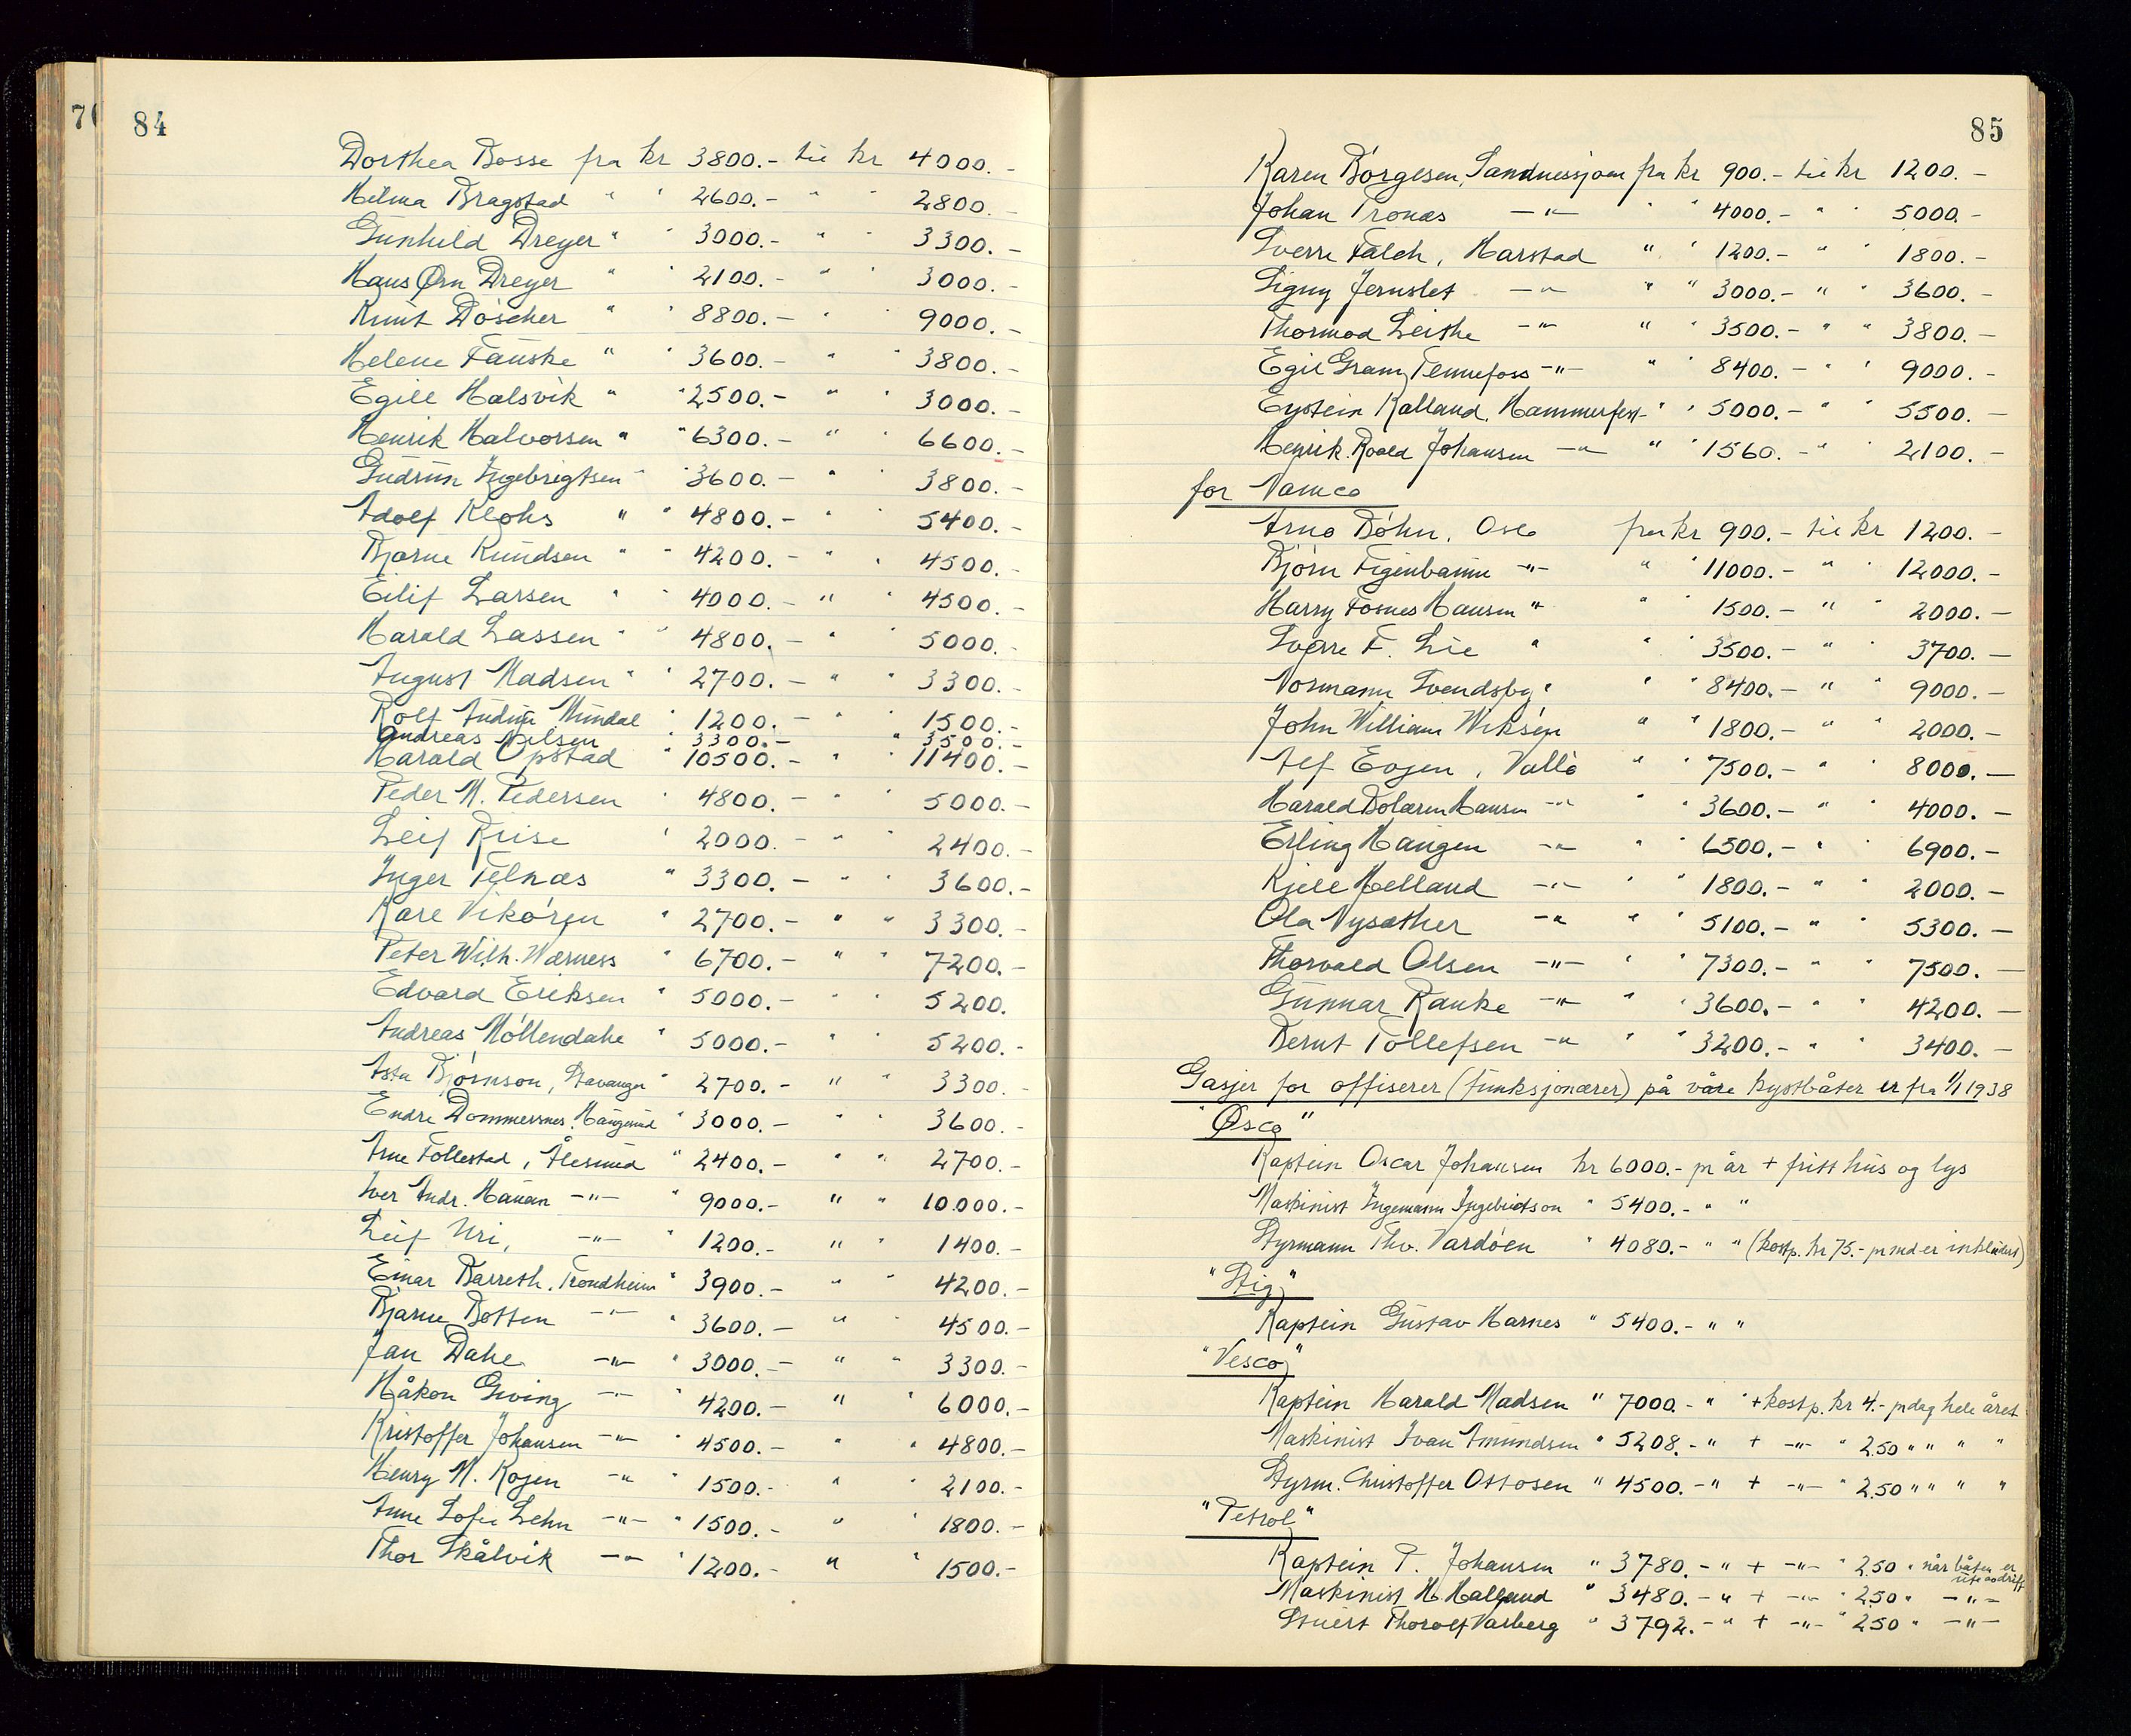 84
Dorthea Bosse fra kr 3800.- til kr 4000.-
Hilma Bragstad " " 2600.- " " 2800.-
Gunhild Dreyer " " 3000.- " " 3300.-
Hans Ørn Dreyer " " 2100.- " " 3000.-
Knut Döscher " " 8800.- " " 9000.-
Helene Fauske " " 3600.- " " 3800.-
Egill Halsvik " " 2500.- " " 3000.-
Henrik Halvorsen " " 6300.- " " 6600.-
Gudrun Ingebrigtsen " " 3600.- " " 3800.-
Adolf Klohs " " 4800.- " " 5400.-
Bjarne Knudsen " " 4200.- " " 4500.-
Eilif Larsen " " 4000.- " " 4500.-
Harald Lassen " " 4800.- " " 5000.-
August Madsen " " 2700.- " " 3300.-
Rolf Mundal " 1200.- " " 1500.-
Andreas Nilsen " 3300.- " 3500.-
Harald Opstad " 10500.- " " 11400.-
Peder M. Pedersen " 4800.- " " 5000.-
Leif Riise " 2000.- " " 2400.-
Inger Telnæs " 3300.- " " 3600.-
Kåre Vikøren " 2700.- " " 3300.-
Peter Wilh. Wærness " 6700.- " " 7200.-
Edvard Eriksen " 5000.- " " 5200.
Andreas Möllendahl " 5000.- " " 5200.-
Asta Bjørnson, Stavanger " 2700.- " " 3300.
Endre Dommersnes, Haugesund " 3000.- " " 3600.-
Arne Follestad, Ålesund " 2400.- " " 2700.-
Iver Andr. -"- " 9000.- " " 10.000.-
Leif Uri, -"- " 1200.- " " 1400.-
Einar Barreth, Trondheim " 3900.- " " 4200.-
Bjarne Botten -"- " 3600.- " " 4500.-
Jan Dahl -"- " 3000.- " " 3300.-
Håkon Gwing -"- " 4200.- " " 6000.-
Kristoffer Johansen -"- " 4500.- " " 4800.-
Henry M. Kojen -"- " 1500.- " " 2100.-
Anne Sofie Lehn -"- " 1500.- " " 1800.-
Thor Skålvik -"- " 1200.- " " 1500.-
85
Karen Börgesen, Sandnessjøen fra kr 900.- til kr 1200.-
Johan Tronæs -"- " " 4000.- " " 5000.-
Sverre Falch, Harstad " " 1200.- " " 1800.-
Signy Jernslet -"- " " 3000.- " " 3600.-
Thormod Leithe -"- " " 3500.- " " 3800.-
Egil Gram, Tennefoss -"- " " 8400.- " " 9000.-
Eystein Kalland, Hammerfest " " 5000.- " " 5500.-
Henrik Roald Johansen -"- " " 1560.- " " 2100.-
for Namco
Arno Bøhn, Oslo fra kr 900.- til kr 1200.-
Bjørn Figenbaum -"- " " 11000.- " " 12000.-
Harry Fosnes Hansen " " " 1500.- " " 2000.-
Sverre F. Lie " " " 3500.- " " 3700.-
Normann Svendsby " " " 8400.- " " 9000.-
John William Wiksén " " 1800.- " " 2000.-
Alf Evjen, Vallø " " 7500.- " " 8000.-
Harald Bolæren Hansen -"- " " 3600.- " " 4000.-
Erling Haugen -"- " " 6500.- " " 6900.-
Kjell Helland -"- " " 1800.- " " 2000.-
Ola Nysæther -"- " " 5100.- " " 5300.-
Thorvald Olsen -"- " " 7300.- " " 7500.-
Gunnar Ranke -"- " " 3600.- " " 4200.-
Bernt Tollefsen -"- " " 3200.- " " 3400.-
Gasjer for offiserer (funksjonærer) på våre kystbåter er fra 1/1 1938
"Øsco"
Kaptein Oscar Johansen kr 6000.- pr år + fritt hus og lys
Maskinist Ingemann Ingebrigtson " 5400.- " "
Styrmann Thv. Vardöen " 4080.- " " (kostp. kr 75.- pr md er inkludert)
"Stig"
Kaptein Gustav Harnes " 5400.- " "
"Vesco"
Kaptein Harald Madsen " 7000.- " " + kostp. kr 4.- pr dag hele året
Maskinist Ivan Amundsen " 5208.- " + -"- " 2.50 " " " "
Styrm. Christoffer Ottosen " 4500.- " + -"- " 2.50 " " " "
"Petrol"
Kaptein T. Johansen " 3780.- " + -"- " 2.50 " når båten er ute av drift
Maskinist H. Halland " 3480.- " + -"- " 2.50 " -"-
Stuert Thorolf Varberg " 3792.- " + -"- " 2.50 " -"-